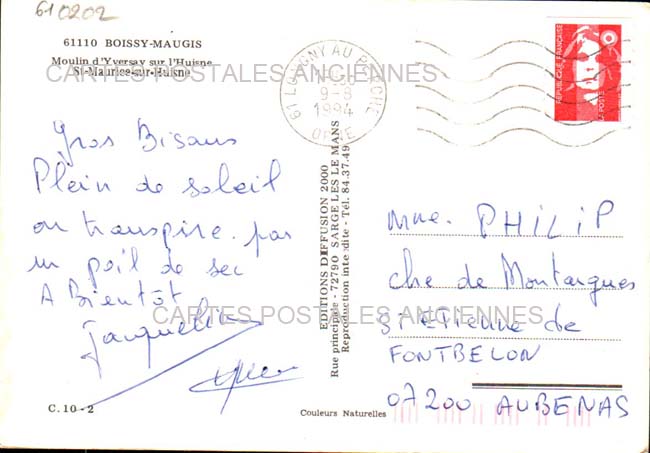 610202
61110 BOISSY-MAUGIS
Moulin d'Yversay sur l'Huisne
St-Maurice-sur-Huisne
CARTES POSTALES ANCIENNES
61 LONGNY AU PERCHE
9-8
1994
ORNE
REPUBLIQUE FRANÇAISE
LA POSTE
Gros Bisous
Plein de soleil
on transpire. pas
un poil de sec
A Bientôt
Jacqueline
EDITIONS DIFFUSION 2000
Rue principale - 72790 SARGE LES LE MANS
Reproduction interdite - Tél. 84.37.49
Mme. PHILIP
che de Montargues
St Etienne de
FONTBELON
07200 AUBENAS
CARTES POSTALES ANCIENNES
C. 10 - 2
Couleurs Naturelles